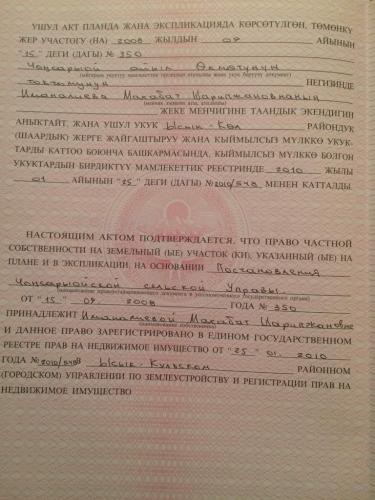 УШУЛ АКТ ПЛАНДА ЖАНА ЭКСПЛИКАЦИЯДА КӨРСӨТҮЛГӨН, ТӨМӨНКҮ
ЖЕР УЧАСТОГУ (НА) 2008 ЖЫЛДЫН 09 АЙЫНЫН
"15" ДЕГИ (ДАГЫ) № 350
Чоңсарыой айыл Өкмөтүнүн
токтомунун НЕГИЗИНДЕ
Иманалиева Масабат Шаригжановнанын
ЖЕКЕ МЕНЧИГИНЕ ТААНДЫК ЭКЕНДИГИН
АНЫКТАЙТ. ЖАНА УШУЛ УКУК Ысык-Көл РАЙОНДУК
(ШААРДЫК) ЖЕРГЕ ЖАЙГАШТЫРУУ ЖАНА КЫЙМЫЛСЫЗ МҮЛККӨ УКУК-
ТАРДЫ КАТТОО БОЮНЧА БАШКАРМАСЫНДА, КЫЙМЫЛСЫЗ МҮЛККӨ БОЛГОН
УКУКТАРДЫН БИРДИКТҮҮ МАМЛЕКЕТТИК РЕЕСТРИНДЕ 2010 ЖЫЛЫ
01 АЙЫНЫН "25" ДЕГИ (ДАГЫ) № 2010/548 МЕНЕН КАТТАЛДЫ.
НАСТОЯЩИМ АКТОМ ПОДТВЕРЖДАЕТСЯ, ЧТО ПРАВО ЧАСТНОЙ
СОБСТВЕННОСТИ НА ЗЕМЕЛЬНЫЙ (ЫЕ) УЧАСТОК (КИ), УКАЗАННЫЙ (ЫЕ) НА
ПЛАНЕ И В ЭКСПЛИКАЦИИ, НА ОСНОВАНИИ Постановления
Чонсарыойской сельской Управы
(наименование правоустанавливающего документа и уполномоченного государственного органа)
ОТ "15" 09 2008 ГОДА № 350
ПРИНАДЛЕЖИТ Иманалиевой Масабат Шаригжановне
(наименование собственника)
И ДАННОЕ ПРАВО ЗАРЕГИСТРИРОВАНО В ЕДИНОМ ГОСУДАРСТВЕННОМ
РЕЕСТРЕ ПРАВ НА НЕДВИЖИМОЕ ИМУЩЕСТВО ОТ "25" 01. 2010
ГОДА № 2010/548 Ысык-Кульском РАЙОННОМ
(ГОРОДСКОМ) УПРАВЛЕНИИ ПО ЗЕМЛЕУСТРОЙСТВУ И РЕГИСТРАЦИИ ПРАВ НА
НЕДВИЖИМОЕ ИМУЩЕСТВО